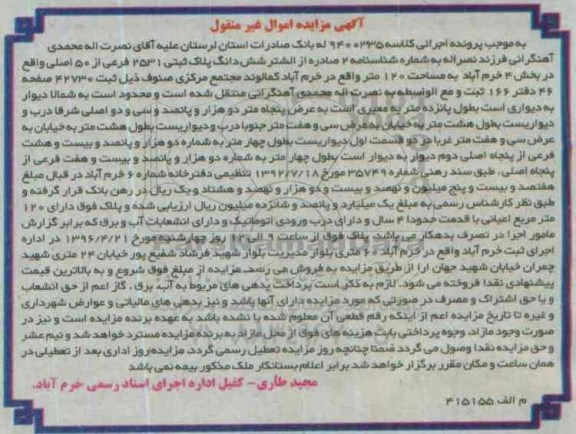 آگهی مزایده اموال غیر منقول
به موجب پرونده اجرائی کلاسه ۹۴۰۰۲۳۵ له بانک صادرات استان لرستان علیه آقای نصرت اله محمدی
آهنگرانی فرزند نصراله به شماره شناسنامه ۲ صادره از الشتر شش دانگ پلاک ثبتی ۲۵۳۱ فرعی از ۵۰ اصلی واقع
در بخش ۴ خرم آباد به مساحت ۱۲۰ متر واقع در خرم آباد کمالوند مجتمع مرکزی صنوف ذیل ثبت ۴۲۷۳۰ صفحه
۴۶ دفتر ۱۶۶ ثبت و مع الواسطه به نصرت اله محمدی آهنگرانی منتقل شده است و محدود است به شمالا دیوار
به دیواری است بطول پانزده متر به معبری است به عرض پنجاه متر دو هزار و پانصد و سی و دو اصلی شرقا درب و
دیواریست بطول هشت متر به خیابان به عرض سی و هفت متر جنوبا درب و دیواریست بطول هشت متر به خیابان به
عرض سی و هفت متر غربا در دو قسمت اول دیواریست بطول چهار متر به شماره دو هزار و پانصد و بیست و هشت
فرعی از پنجاه اصلی دوم دیوار به دیوار است بطول چهار متر به شماره دو هزار و پانصد و بیست و هفت فرعی از
پنجاه اصلی، طبق سند رهنی شماره ۳۵۷۴۹ مورخ ۱۳۹۲/۷/۱۸ تنظیمی دفترخانه شماره ۶ خرم آباد در قبال مبلغ
هفتصد و بیست و پنج میلیون و نهصد و بیست و دو هزار و نهصد و هشتاد و یک ریال در رهن بانک قرار گرفته و
طبق نظر کارشناس رسمی به مبلغ یک میلیارد و پانصد و شانزده میلیون ریال ارزیابی شده و پلاک فوق دارای ۱۲۰
متر مربع اعیانی با قدمت حدودا ۴ سال و دارای درب ورودی اتوماتیک و دارای انشعابات آب و برق که برابر گزارش
مامور اجرا در تصرف بدهکار می باشد. پلاک فوق از ساعت ۹ الی ۱۲ روز چهارشنبه مورخ ۱۳۹۶/۴/۲۱ در اداره
اجرای ثبت خرم آباد واقع در خرم آباد ۶۰ متری بلوار مدیریت بلوار شهید فرشاد شفیع پور خیابان ۲۴ متری شهید
چمران خیابان شهید جهان آرا از طریق مزایده به فروش می رسد. مزایده از مبلغ فوق شروع و به بالاترین قیمت
پیشنهادی نقدا فروخته می شود. لازم به ذکر است پرداخت بدهی های مربوط به آب، برق، گاز اعم از حق انشعاب
و یا حق اشتراک و مصرف در صورتی که مورد مزایده دارای آنها باشد و نیز بدهی های مالیاتی و عوارض شهرداری
و غیره تا تاریخ مزایده اعم از اینکه رقم قطعی آن معلوم شده یا نشده باشد به عهده برنده مزایده است و نیز در
صورت وجود مازاد، وجوه پرداختی بابت هزینه های فوق از محل مازاد به برنده مزایده مسترد خواهد شد و نیم عشر
و حق مزایده نقدا وصول می گردد ضمنا چنانچه روز مزایده تعطیل رسمی گردد، مزایده روز اداری بعد از تعطیلی در
همان ساعت و مکان مقرر برگزار خواهد شد برابر اعلام بستانکار ملک مذکور بیمه نمی باشد
مجید طاری - کفیل اداره اجرای اسناد رسمی خرم آباد.
م الف ۴۱۵۱۵۵